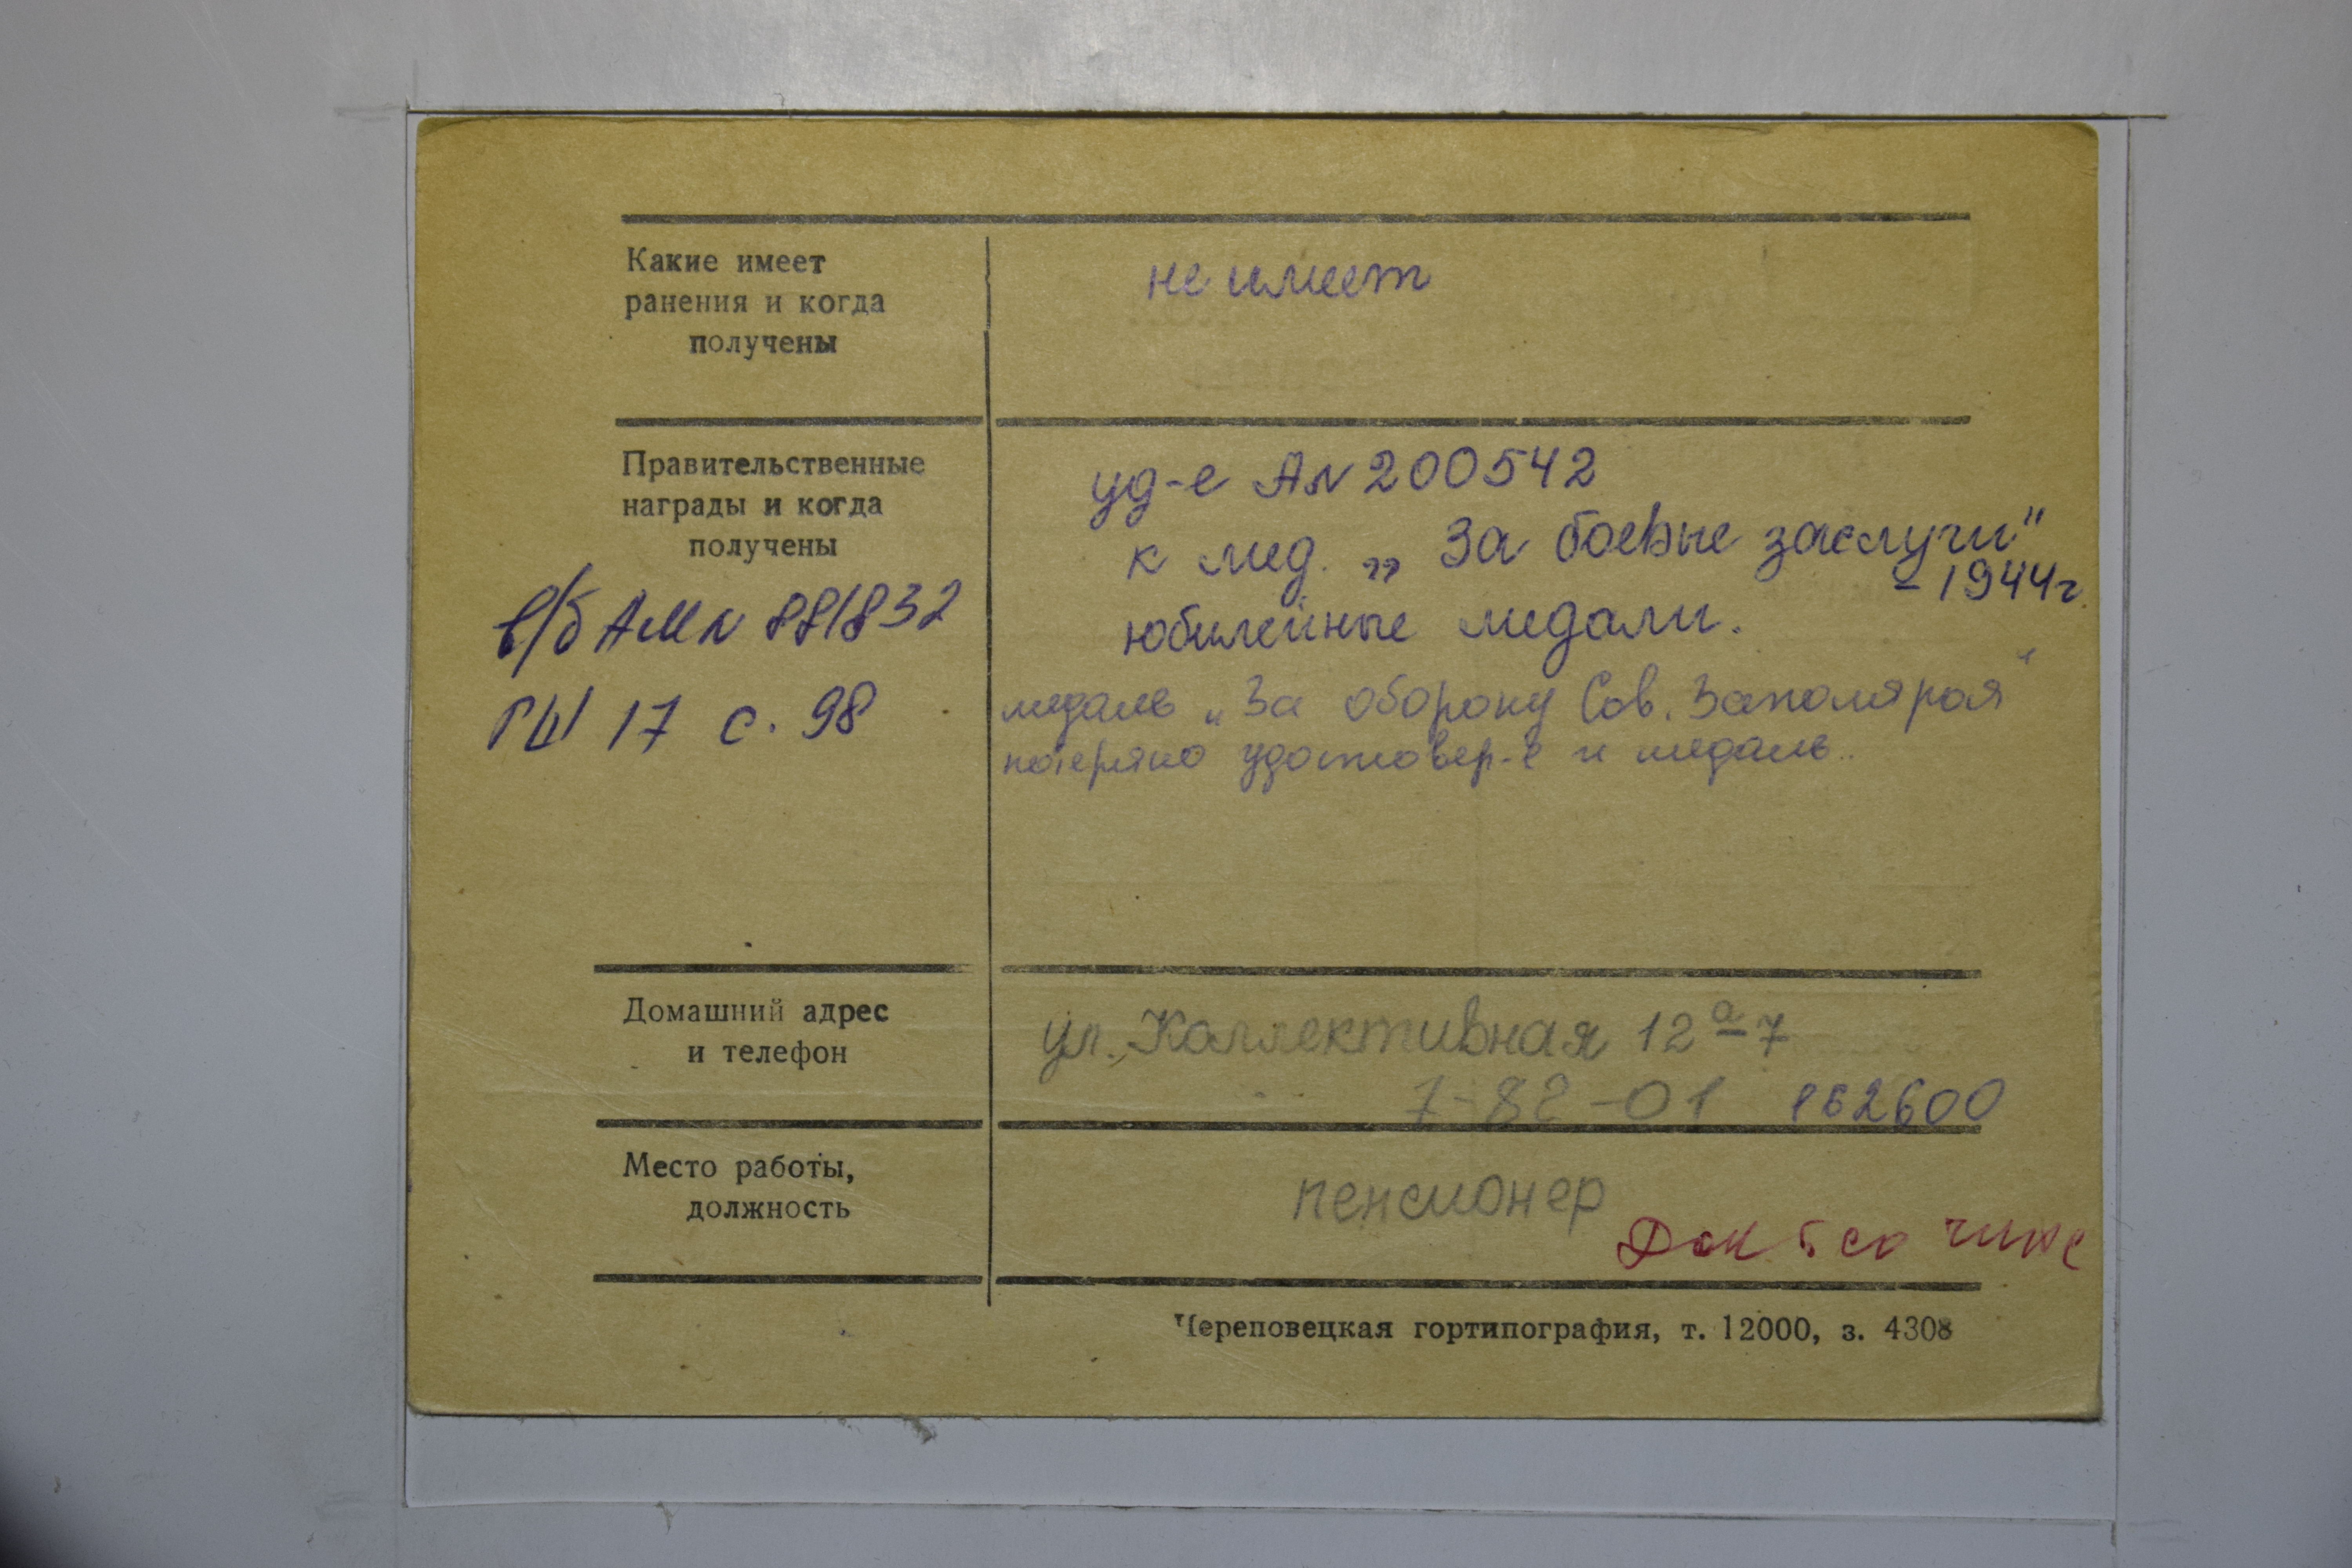 Какие имеет
ранения и когда
получены
не имеет
Правительственные
награды и когда
получены
в/б АМ № 881832
ГШ 17 с. 98
уд-е А № 200542
к мед. „За боевые заслуги"
- 1944г.
юбилейные медали.
медаль „За оборону Сов. Заполярья"
потеряно удостовер-е и медаль..
Домашний адрес
и телефон
ул. Коллективная 12а-7
7-82-01 162600
Место работы,
должность
пенсионер
Череповецкая гортипография, т. 12000, з. 4308